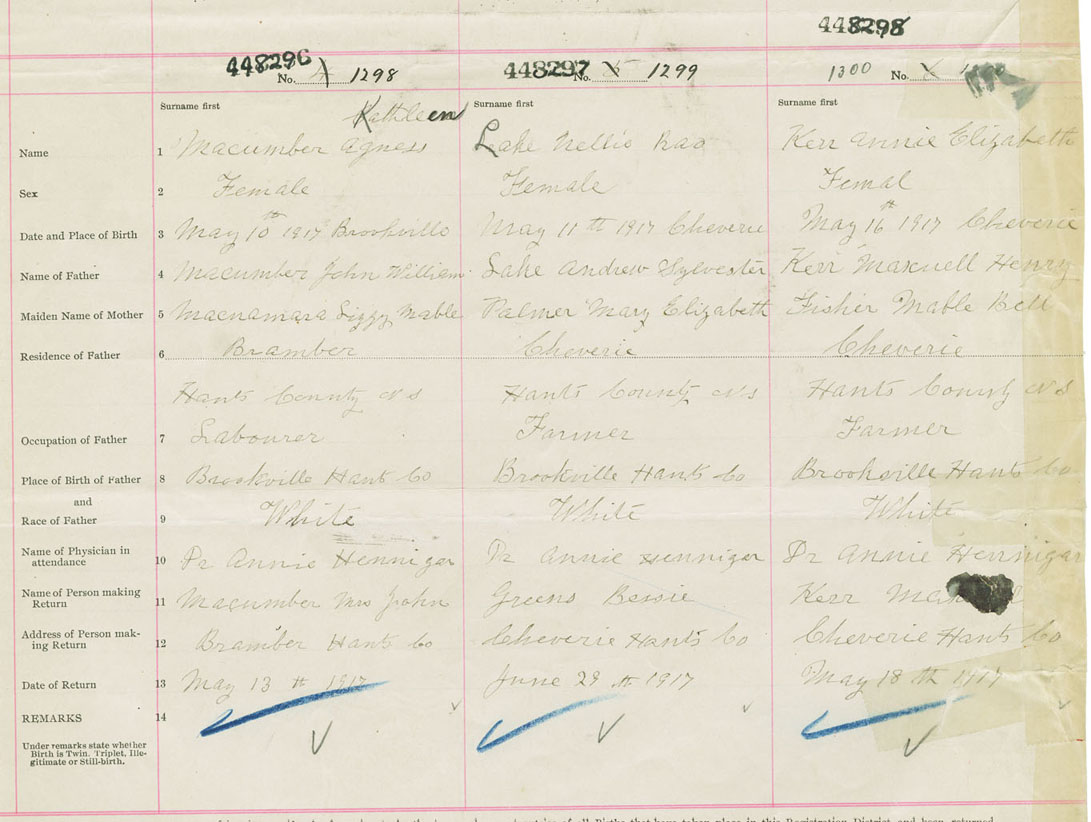 448298
448296 448297
No. 4 1298 No. 5 1299 1300 No. 6
Surname first Surname first Surname first
Kathleen
Name 1 Macumber Agness Lake Nellie Kerr Annie Elizabeth
Sex 2 Female Female Femal
Date and Place of Birth 3 May 10th 1917 Brookville May 11th 1917 Cheverie May 16th 1917 Cheverie
Name of Father 4 Macumber John William Lake Andrew Sylvester Kerr Maxwell Henry
Maiden Name of Mother 5 Macnamara Lizzy Mable Palmer Mary Elizabeth Fisher Mable Bell
Residence of Father 6 Bramber Cheverie Cheverie
Hants County N S Hants County N S Hants County N S
Occupation of Father 7 Labourer Farmer Farmer
Place of Birth of Father 8 Brookville Hants Co Brookville Hants Co Brookville Hants Co
and
Race of Father 9 White White White
Name of Physician in attendance 10 Dr Annie Hennigar Dr Annie Hennigar Dr Annie Hennigar
Name of Person making Return 11 Macumber Mrs John Greene Bessie Kerr
Address of Person making Return 12 Bramber Hants Co Cheverie Hants Co Cheverie Hants Co
Date of Return 13 May 13th 1917 June 29th 1917 May 18th 1917
REMARKS 14
Under remarks state whether
Birth is Twin. Triplet, Ille-
gitimate or Still-birth.
of all Births that have taken place in this Registration District, and been returned